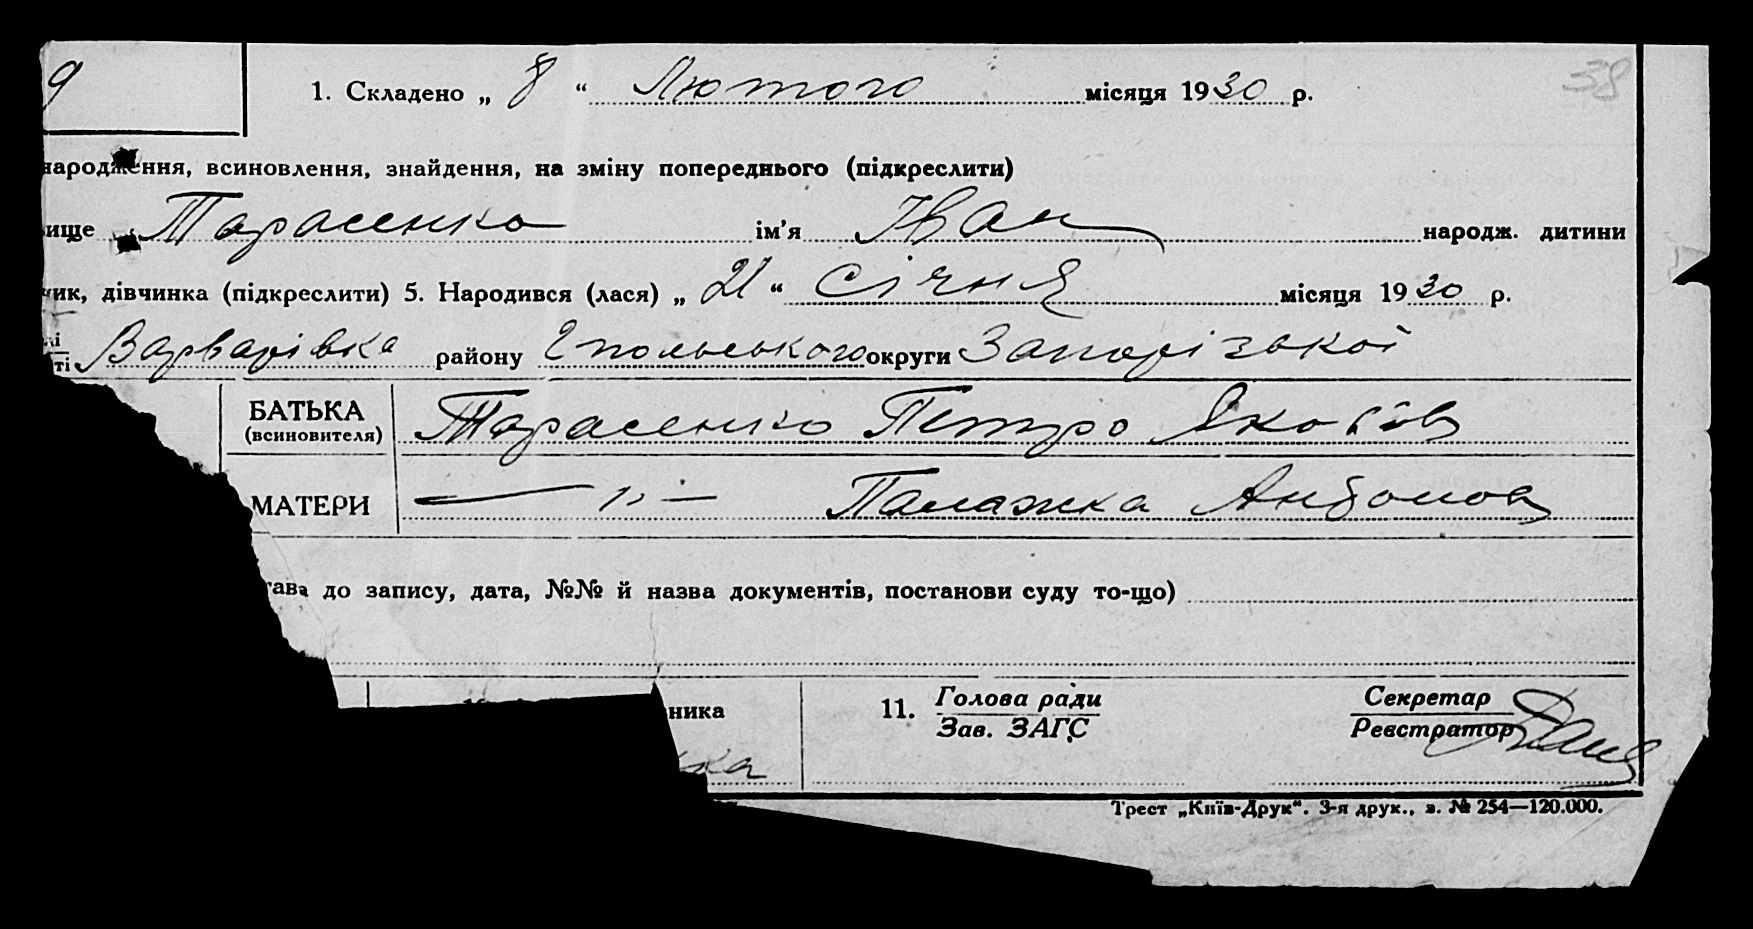 9
1. Складено „ 8 “ Лютого місяця 1930 р.
38
народження, всиновлення, знайдення, на зміну попереднього (підкреслити)
ище Тарасенко ім’я Іван народж. дитини
чик, дівчинка (підкреслити) 5. Народився (лася) „ 21 “ січня місяця 1930 р.
ті Варварівка району Гпольського округи Запорізької
БАТЬКА Тарасенко Петро Яковів
(всиновителя)
МАТЕРИ — „ — Палажка Антонов
тава до запису, дата, №№ й назва документів, постанови суду то-що)
ника 11. Голова ради Секретар
Зав. ЗАГС Реєстратор
ка
Трест „Київ-Друк“. 3-я друк., з. № 254—120.000.